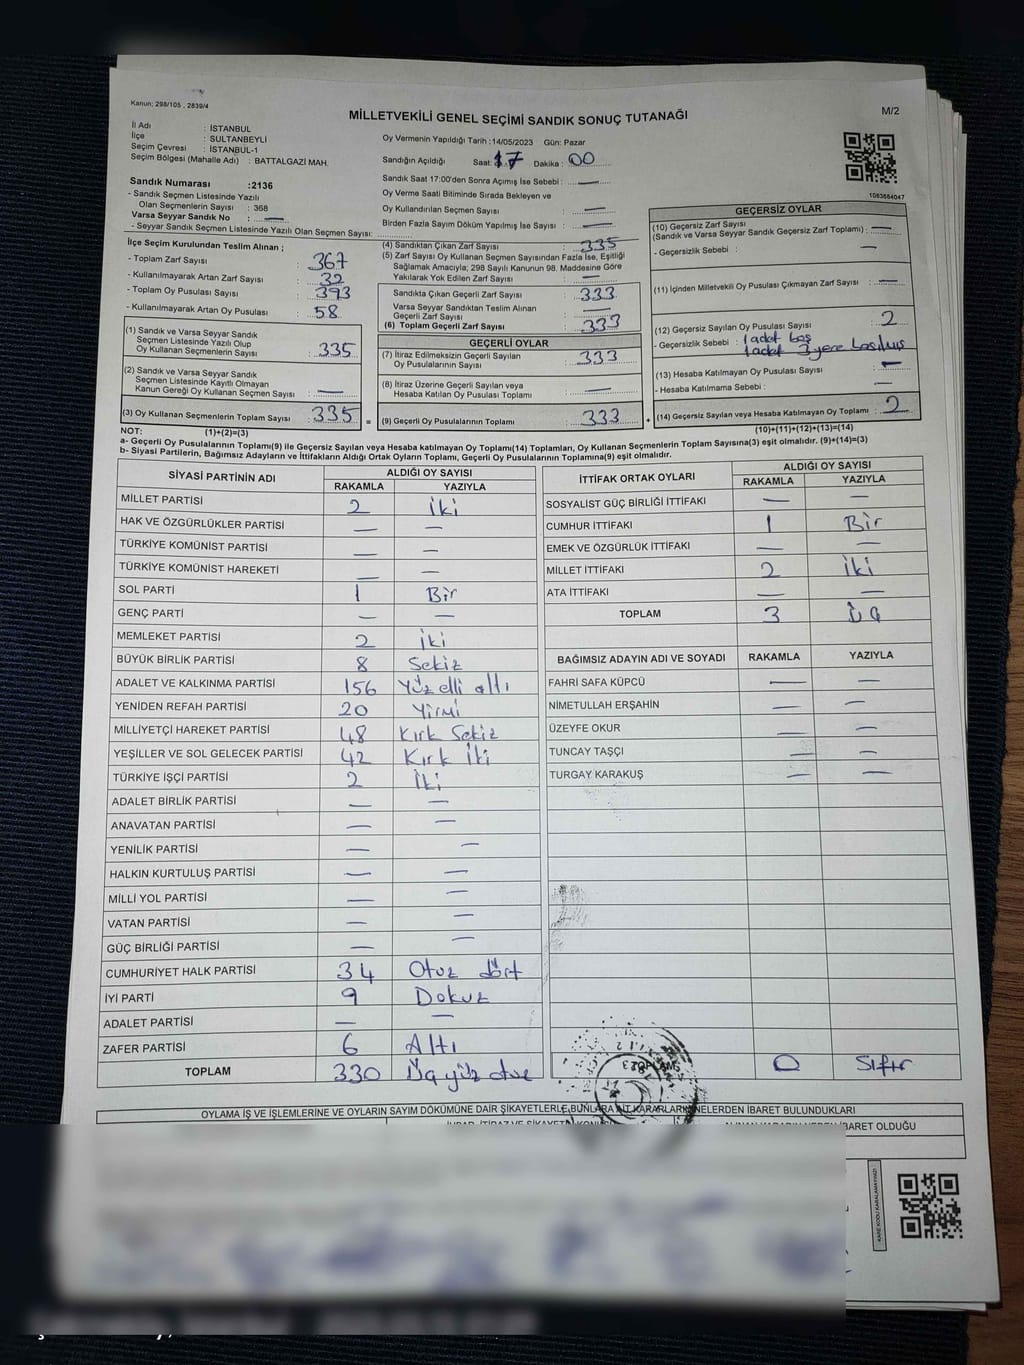 Kanun; 298/105 , 2839/4
MİLLETVEKİLİ GENEL SEÇİMİ SANDIK SONUÇ TUTANAĞI
M/2
İl Adı : İSTANBUL
İlçe : SULTANBEYLİ
Seçim Çevresi : İSTANBUL-1
Seçim Bölgesi (Mahalle Adı) : BATTALGAZİ MAH.
Sandık Numarası :2136
- Sandık Seçmen Listesinde Yazılı
Olan Seçmenlerin Sayısı : 368
Varsa Seyyar Sandık No : —
- Seyyar Sandık Seçmen Listesinde Yazılı Olan Seçmen Sayısı:
İlçe Seçim Kurulundan Teslim Alınan ;
- Toplam Zarf Sayısı : 367
- Kullanılmayarak Artan Zarf Sayısı : 32
- Toplam Oy Pusulası Sayısı : 393
- Kullanılmayarak Artan Oy Pusulası : 58
(1) Sandık ve Varsa Seyyar Sandık
Seçmen Listesinde Yazılı Olup
Oy Kullanan Seçmenlerin Sayısı : 335
(2) Sandık ve Varsa Seyyar Sandık
Seçmen Listesinde Kayıtlı Olmayan
Kanun Gereği Oy Kullanan Seçmen Sayısı : —
(3) Oy Kullanan Seçmenlerin Toplam Sayısı : 335 =
Oy Vermenin Yapıldığı Tarih :14/05/2023 Gün: Pazar
Sandığın Açıldığı Saat: 17 Dakika : 00
Sandık Saat 17:00'den Sonra Açımış İse Sebebi : —
Oy Verme Saati Bitiminde Sırada Bekleyen ve
Oy Kullandırılan Seçmen Sayısı : —
Birden Fazla Sayım Döküm Yapılmış İse Sayısı : —
(4) Sandıktan Çıkan Zarf Sayısı : 335
(5) Zarf Sayısı Oy Kullanan Seçmen Sayısından Fazla İse, Eşitliği
Sağlamak Amacıyla; 298 Sayılı Kanunun 98. Maddesine Göre
Yakılarak Yok Edilen Zarf Sayısı : —
Sandıkta Çıkan Geçerli Zarf Sayısı : 333
Varsa Seyyar Sandıktan Teslim Alınan
Geçerli Zarf Sayısı : —
(6) Toplam Geçerli Zarf Sayısı : 333
GEÇERLİ OYLAR
(7) İtiraz Edilmeksizin Geçerli Sayılan
Oy Pusulalarının Sayısı : 333
(8) İtiraz Üzerine Geçerli Sayılan veya
Hesaba Katılan Oy Pusulası Toplamı : —
(9) Geçerli Oy Pusulalarının Toplamı : 333 +
1083664047
GEÇERSİZ OYLAR
(10) Geçersiz Zarf Sayısı
(Sandık ve Varsa Seyyar Sandık Geçersiz Zarf Toplamı) : —
- Geçersizlik Sebebi : —
(11) İçinden Milletvekili Oy Pusulası Çıkmayan Zarf Sayısı : —
(12) Geçersiz Sayılan Oy Pusulası Sayısı : 2
- Geçersizlik Sebebi : 1 adet boş
1 adet 3 yere basılmış
(13) Hesaba Katılmayan Oy Pusulası Sayısı : —
- Hesaba Katılmama Sebebi : —
(14) Geçersiz Sayılan veya Hesaba Katılmayan Oy Toplamı : 2
NOT: (1)+(2)=(3) (10)+(11)+(12)+(13)=(14)
a- Geçerli Oy Pusulalarının Toplamı(9) ile Geçersiz Sayılan veya Hesaba katılmayan Oy Toplamı(14) Toplamları, Oy Kullanan Seçmenlerin Toplam Sayısına(3) eşit olmalıdır. (9)+(14)=(3)
b- Siyasi Partilerin, Bağımsız Adayların ve İttifakların Aldığı Ortak Oyların Toplamı, Geçerli Oy Pusulalarının Toplamına(9) eşit olmalıdır.
SİYASİ PARTİNİN ADI ALDIĞI OY SAYISI
RAKAMLA YAZIYLA
MİLLET PARTİSİ 2 İki
HAK VE ÖZGÜRLÜKLER PARTİSİ — —
TÜRKİYE KOMÜNİST PARTİSİ — —
TÜRKİYE KOMÜNİST HAREKETİ — —
SOL PARTİ 1 Bir
GENÇ PARTİ — —
MEMLEKET PARTİSİ 2 İki
BÜYÜK BİRLİK PARTİSİ 8 Sekiz
ADALET VE KALKINMA PARTİSİ 156 Yüz elli altı
YENİDEN REFAH PARTİSİ 20 Yirmi
MİLLİYETÇİ HAREKET PARTİSİ 48 Kırk Sekiz
YEŞİLLER VE SOL GELECEK PARTİSİ 42 Kırk İki
TÜRKİYE İŞÇİ PARTİSİ 2 İki
ADALET BİRLİK PARTİSİ — —
ANAVATAN PARTİSİ — —
YENİLİK PARTİSİ — —
HALKIN KURTULUŞ PARTİSİ — —
MİLLİ YOL PARTİSİ — —
VATAN PARTİSİ — —
GÜÇ BİRLİĞİ PARTİSİ — —
CUMHURİYET HALK PARTİSİ 34 Otuz dört
İYİ PARTİ 9 Dokuz
ADALET PARTİSİ — —
ZAFER PARTİSİ 6 Altı
TOPLAM 330 Üç yüz otuz
İTTİFAK ORTAK OYLARI ALDIĞI OY SAYISI
RAKAMLA YAZIYLA
SOSYALİST GÜÇ BİRLİĞİ İTTİFAKI — —
CUMHUR İTTİFAKI 1 Bir
EMEK VE ÖZGÜRLÜK İTTİFAKI — —
MİLLET İTTİFAKI 2 İki
ATA İTTİFAKI — —
TOPLAM 3 Üç
BAĞIMSIZ ADAYIN ADI VE SOYADI RAKAMLA YAZIYLA
FAHRİ SAFA KÜPCÜ — —
NİMETULLAH ERŞAHİN — —
ÜZEYFE OKUR — —
TUNCAY TAŞÇI — —
TURGAY KARAKUŞ — —
TOPLAM 0 Sıfır
OYLAMA İŞ VE İŞLEMLERİNE VE OYLARIN SAYIM DÖKÜMÜNE DAİR ŞİKAYETLERLE,BUNLARA AİT KARARLARIN NELERDEN İBARET BULUNDUKLARI
İBARET OLDUĞU